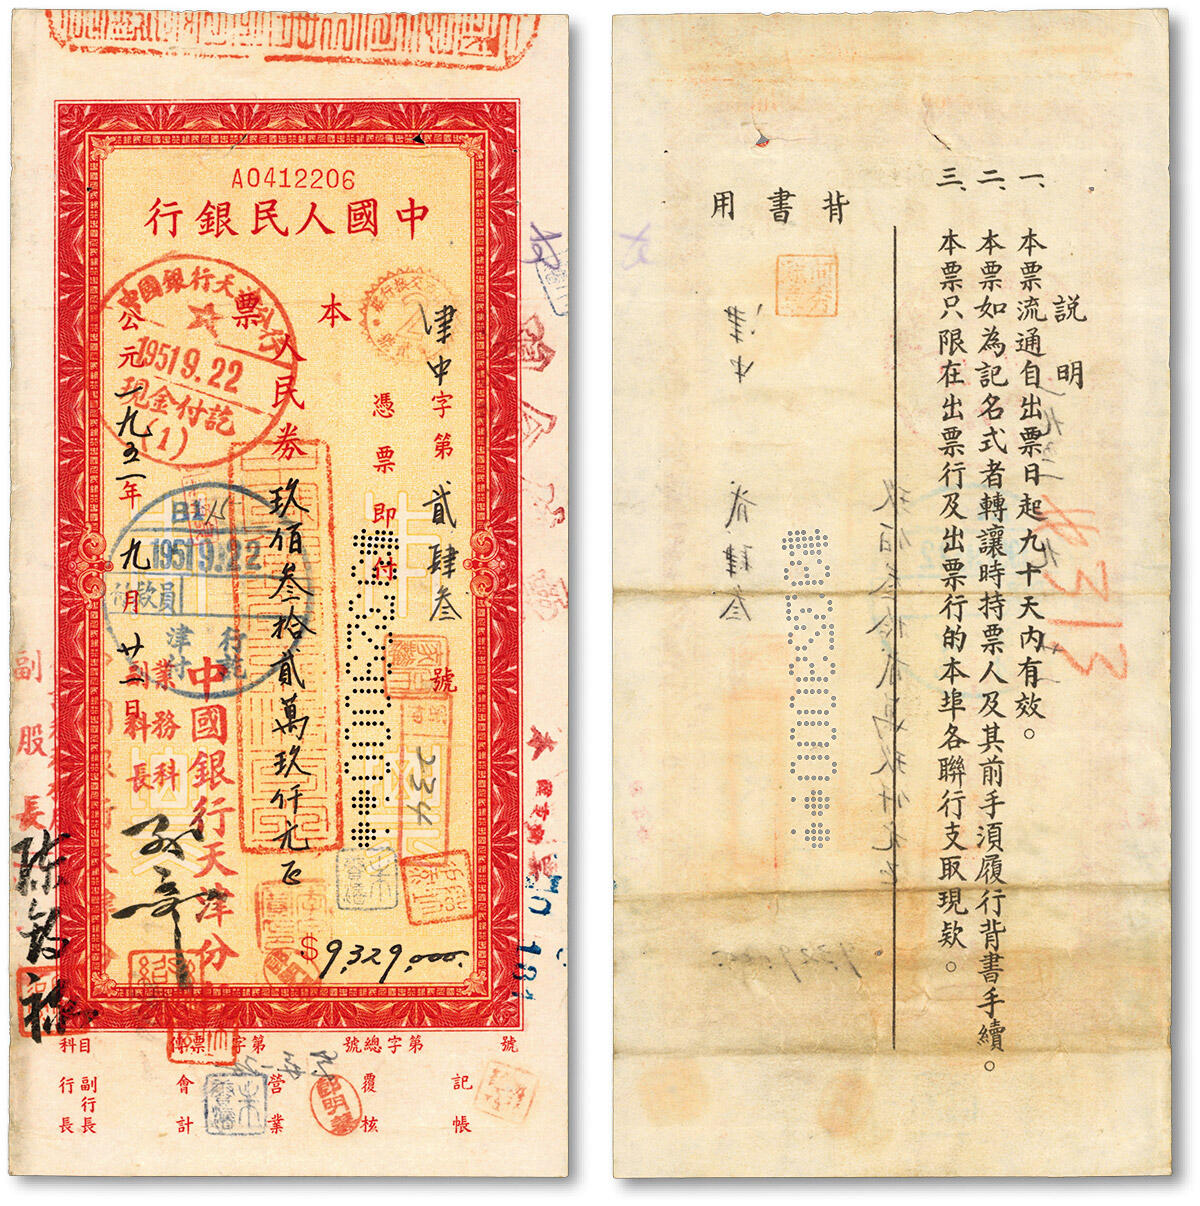 A0412206
中國人民銀行
本票
津中字第貳肆叁號
憑票即付
人民券玖佰叁拾貳萬玖仟元正
$9,329,000.
公元一九五一年九月廿二日
中國銀行天津分
業務科
副科長
副股長
中國銀行天津
19519.22
現金付訖
(1)
19519.22
收款員
234
科目
傳票字第
總字第號
行長
副行長
會計
營業
覆核
記帳
背書用
说明
一、本票流通自出票日起九十天内有效。
二、本票如為記名式者轉讓時持票人及其前手須履行背書手續。
三、本票只限在出票行及出票行的本埠各聯行支取現款。